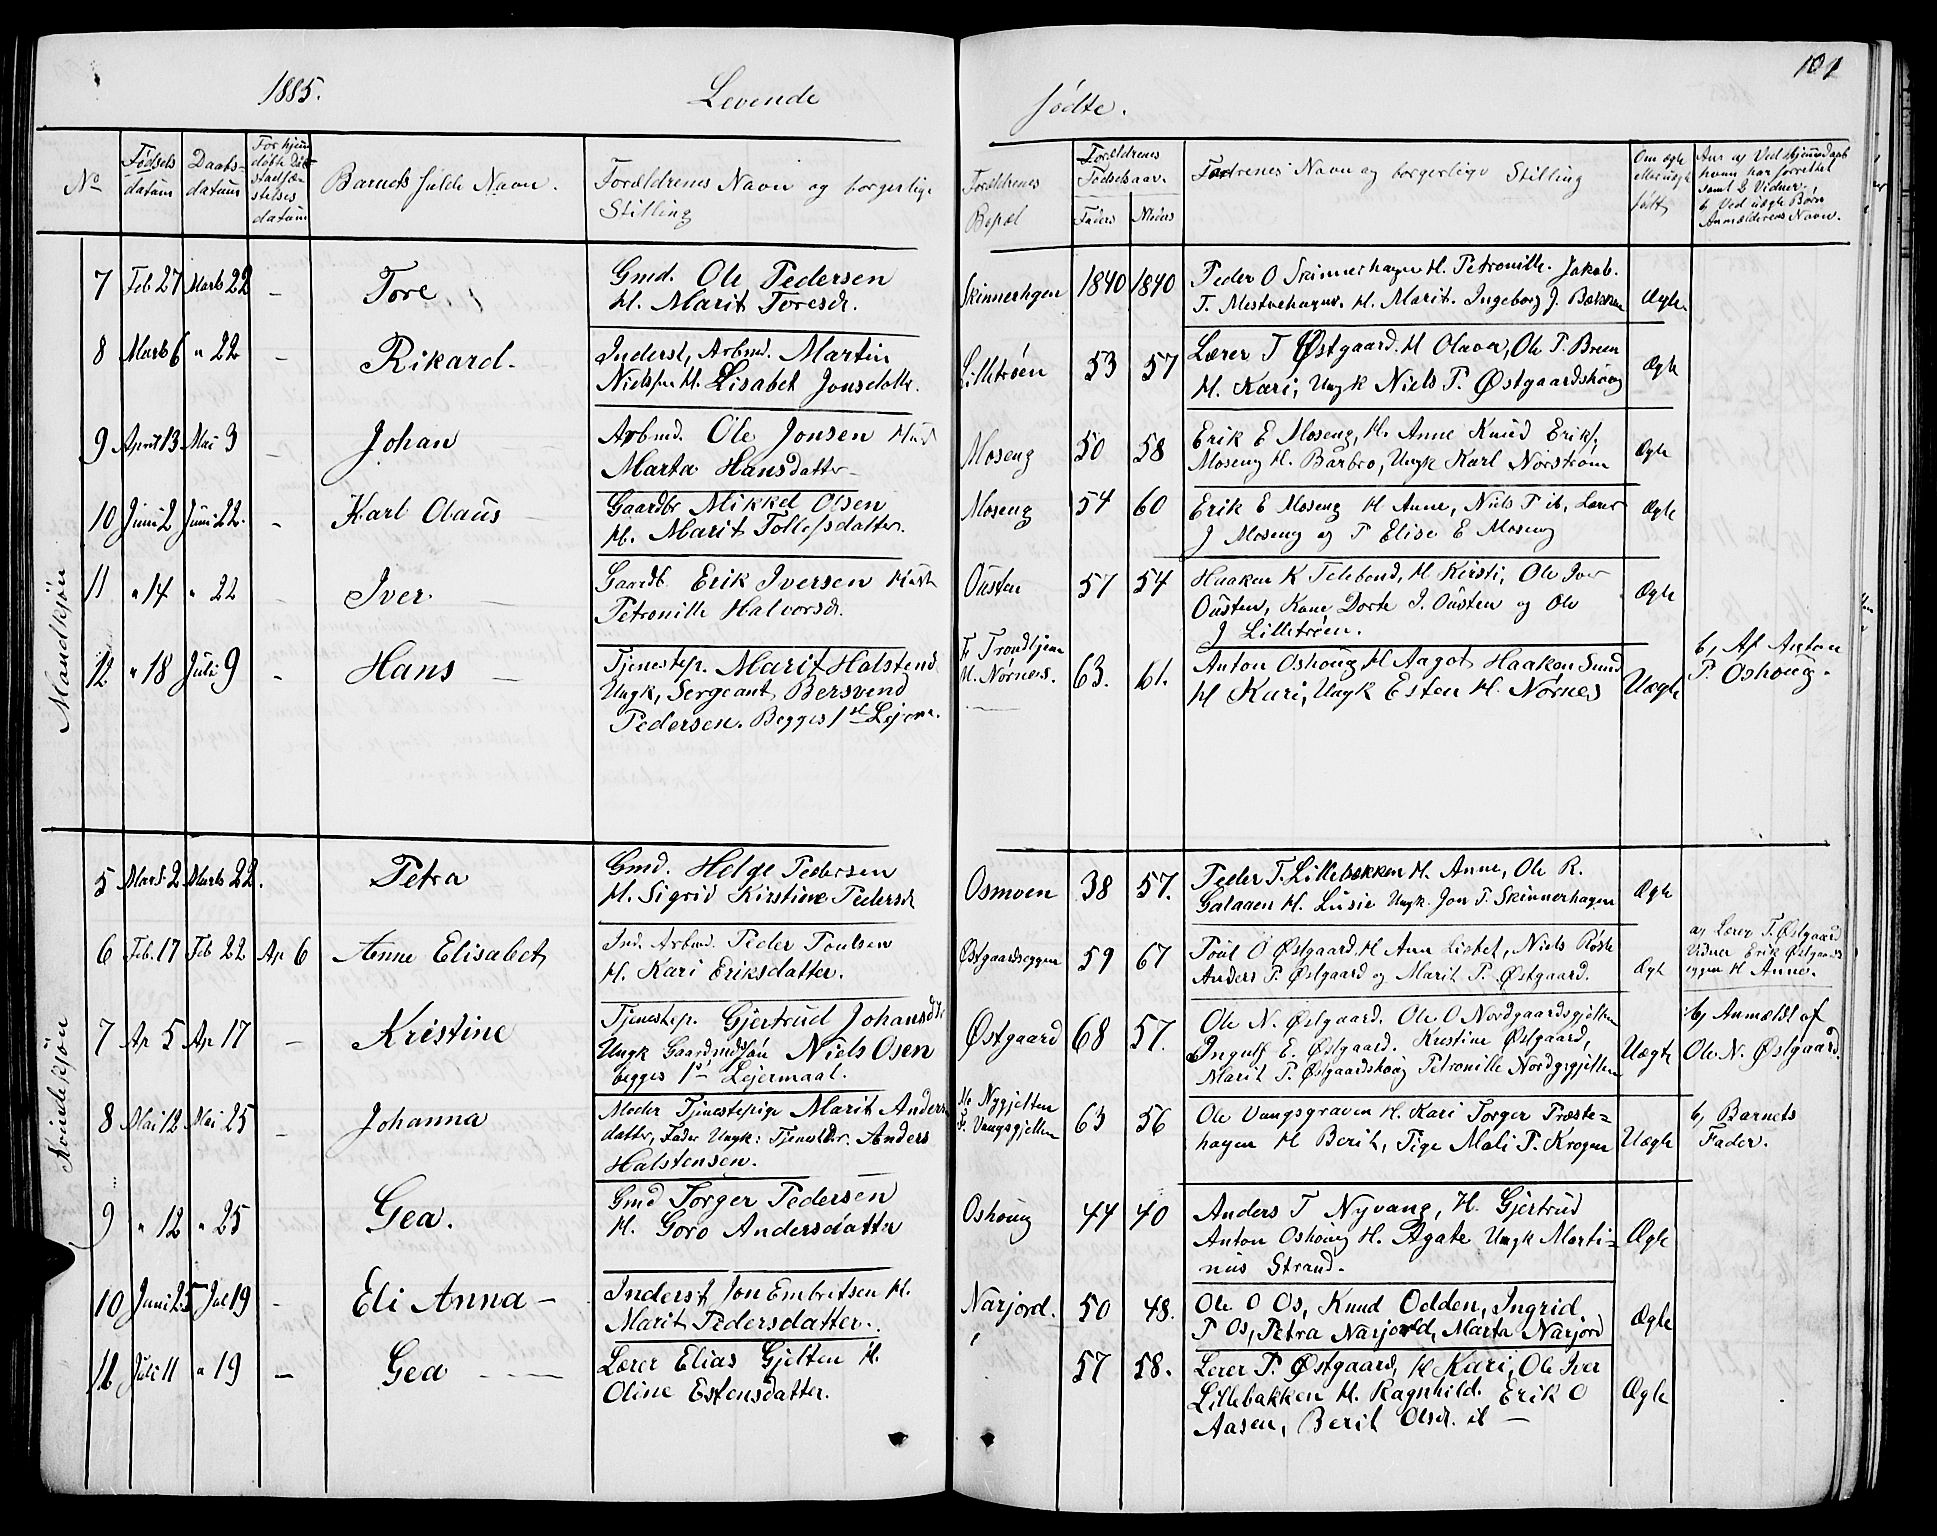 1885.
Levende
fødte.
101
No
Fødsels
datum
Daabs-
datum
For hjem
døbte Daa
stadfæ-
stelses
datum
Barnets fulde Navn.
Forældrenes Navn og borgerlige
Stilling
Forældrenes
Bopæl
Forældrenes
Fødselsaar.
Faders
Moders
Faddrenes Navn og borgerlige Stilling
Om ægte
eller uægte
født
Ved hjemmedaab
hvem har forrettet
samt 2 Vidner.
b, Ved uægte Børn
Anmælderens Navn.
Mandkjøn
7 Feb 27 Marts 22 - Tore
Gmd. Ole Pedersen
H. Marit Toresdr.
Skinnerhgen 1840 1840
Peder O Skinnerhagen H. Petronille. Jakob.
T. Mestuehagne. H. Marit. Ingeborg J. Bakken
Ægte
8 Marts 6 " 22 - Rikard.
Inderst, Arbmd. Martin
Nielsen H. Lisabet Jonsdattr.
Lilletrøen 53 57
Lærer T Østgaard. H Olava, Ole P. Breen
H. Kari, Ungk Niels P. Østgaardshoug
Ægte
9 April 13 Mai 3 - Johan
Arbmd. Ole Jonsen Hust
Marta Hansdatter
Moseng 50 58
Erik E Moseng, H. Anne Knud Eriks.
Moseng H. Barbro, Ungk Karl Norstrøm
Ægte
10 Juni 2 Juni 22. - Karl Olaus
Gaardbr Mikkel Olsen
H. Marit Tollefsdatter.
Moseng 54 60
Erik E Moseng H Anne, Niels P ib, Lærer
J Moseng og P Elise E Moseng
Ægte
11 " 14 " 22 - Iver.
Gaardb. Erik Iversen Hust
Petronille Halvorsdr.
Ousten 57 54
Haaken K Telebond, H Kirsti, Ole Iver
Ousten, Kone Dorte I. Ousten og Ole
J Lilletrøen.
Ægte
12 " 18 Juli 9 - Hans
Tjenestep. Marit Halstensd
Ungk, Sergeant Bersvend
Pedersen. Begges 1ste Lejerm.
F. Trondhjem
M. Nørnes. 63. 61.
Anton Oshoug H Aagot Haaken Sund
H Kari, Ungk Esten H. Nørnes
Uægte
b, Af Anton
P. Oshoug.
Kvindekjøn
5 Marts 2 Marts 22. Petra
Gmd. Helge Pedersen
H. Sigrid Kirstine Pedersd
Osmoen 38 57.
Peder T. Lillebakken H. Anne, Ole R.
Galaaen H. Lusie Ungk. Jon P. Skinnerhagen
Ægte
6 Feb. 17 Feb 22 Ap 6 Anne Elisabet
Ind. Arbmd. Peder Poulsen
H. Kari Eriksdatter.
Østgaardseggen 59 67
Poul O Østgaard H Ane Lisbet, Niels Røste
Anders P. Østgaard og Marit P. Østgaard.
Ægt
a, Lærer T. Østgaard
Vidner Erik Østgaards
eggen H Anne.
7 Ap 5 Ap 17 - Kristine
Tjenestep. Gjertrud Johansdtr
Ungk Gaardmdssøn Niels Osen
begges 1st Lejermaal.
Østgaard 68 57.
Ole N. Østgaard. Ole O Nordgaardsgjelten
Ingulf E. Østgaard. Kristine Østgaard,
Marit P. Østgaardshoug Petronille Nordgsgjelten
Uægte
b, Anmældt af
Ole N. Østgaard.
8 Mai 12 Mai 25 - Johanna
Moder Tjenestepige Marit Anders
datter, Fader Ungk: Tjenestkr. Anders
Halstensen.
Mo Nygjelten
F. Vangsgjelten 63 56
Ole Vangsgraven H. Kari Torger Præste=
hagen H Berit, Pige Mali P. Krogen
Uægte
b, Barnets
Fader.
9 " 12 " 25 Gea.
Gmd Torger Pedersen
H. Goro Andersdatter
Oshoug 44 40
Anders T Nyvang, H. Gjertrud
Anton Oshoug H. Agate Ungk Marti=
nus Strand.
Ægte
10 Juni 25 Jul 19 - Eli Anna -
Inderst Jon Embretsen H.
Marit Pedersdatter.
Narjord. 50 48.
Ole O Os, Knud Odden, Ingrid
P Os, Petra Narjord, Marta Narjord
Ægte
11 Juli 11 " 19 - Gea
Lærer Elias Gjelten H.
Oline Estensdatter.
57 58.
Lærer P. Østgaard, H Kari, Ole Iver
Lillebakken H. Ragnhild. Erik O
Aasen, Berit Olsdr. ib -
Ægte